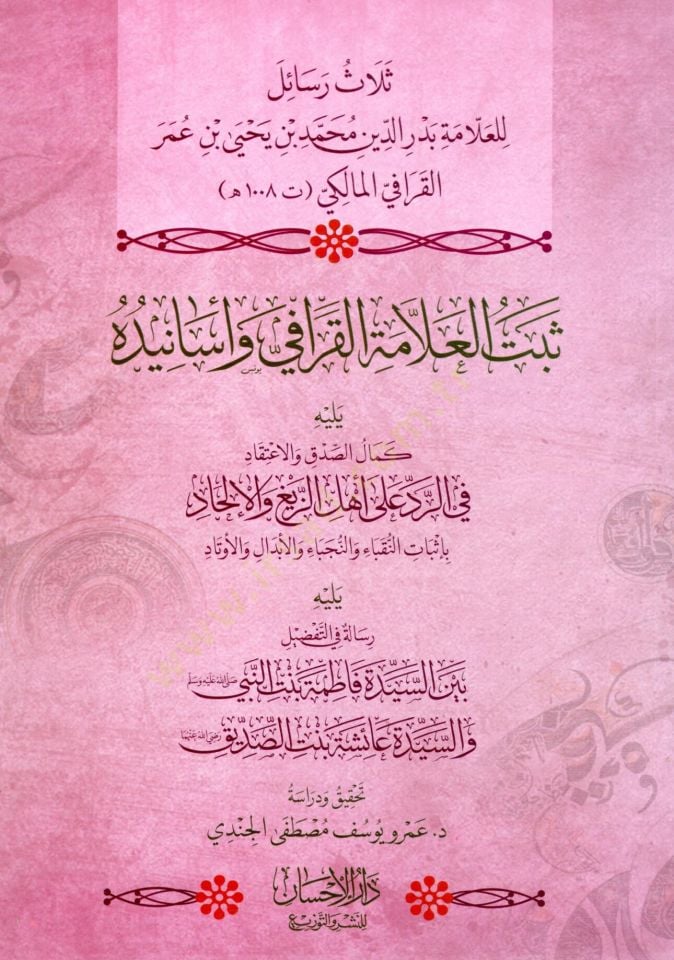 ثَلَاثُ رَسَائِلَ
لِلعَلّامَةِ بَدْرِ الدِّينِ مُحَمَّدِ بْنِ يَحْيَىٰ بْنِ عُمَرَ
القَرَافِيِّ المَالِكِيِّ (ت ١٠٠٨ هـ)
ثَبَتُ العَلَّامَةِ القَرَافِيِّ وَأَسَانِيدُهُ
يونس
يَلِيْهِ
كَمَالُ الصِّدْقِ وَالِاعْتِقَادِ
فِي الرَّدِّ عَلَى أَهْلِ الزَّيْغِ وَالإِلْحَادِ
بِإِثْبَاتِ النُّقَبَاءِ وَالنُّجَبَاءِ وَالأَبْدَالِ وَالأَوْتَادِ
يَلِيْهِ
رِسَالَةٌ فِي التَّفْضِيْلِ
بَيْنَ السَّيِّدَةِ فَاطِمَةَ بِنْتِ النَّبِيِّ صَلَّى اللهُ عَلَيْهِ وَسَلَّمَ
وَالسَّيِّدَةِ عَائِشَةَ بِنْتِ الصِّدِّيْقِ رَضِيَ اللهُ عَنْهُمَا
تَحْقِيْقُ وَدِرَاسَةُ
د. عَمْرو يُوسُف مُصْطَفَى الجِنْدِي
دَارُ الإِحْسَانِ
لِلنَّشْرِ وَالتَّوْزِيعِ